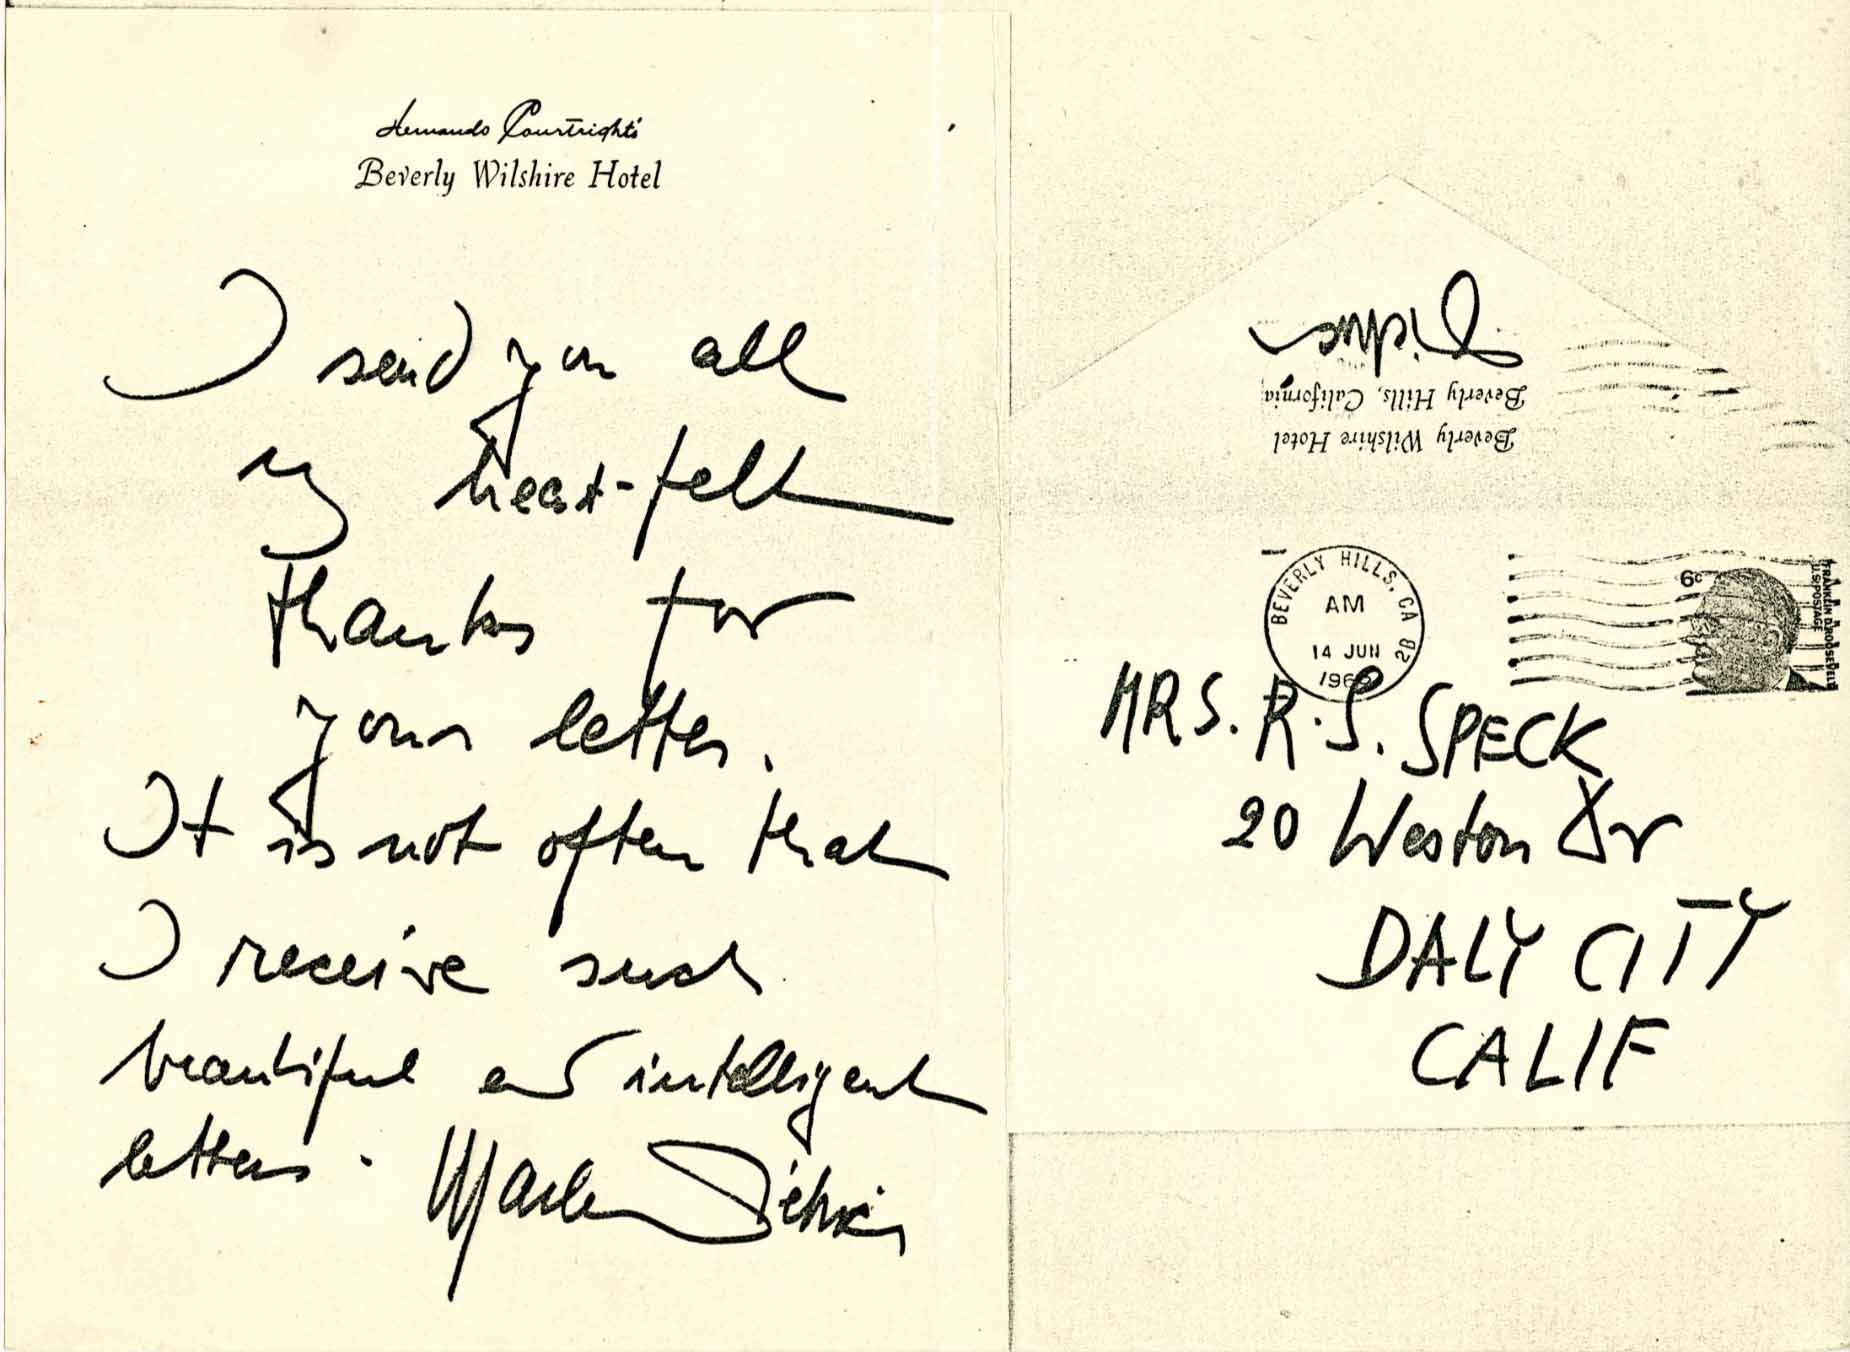 Hernando Courtright's
Beverly Wilshire Hotel
I send you all
my heart-felt
thanks for
your letter.
It is not often that
I receive such
beautiful and intelligent
letters.
Marlene Dietrich
Dietrich
Beverly Hills, California
Beverly Wilshire Hotel
BEVERLY HILLS, CA
AM
14 JUN
6c
FRANKLIN D. ROOSEVELT
U.S. POSTAGE
MRS. R. S. SPECK
20 Weston Dr
DALY CITY
CALIF